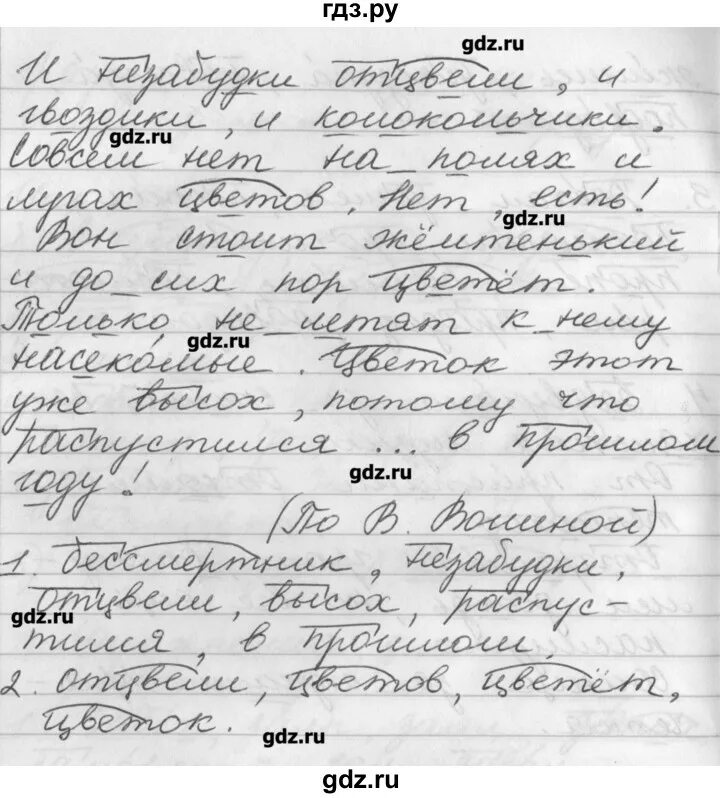 гдз.ру
gdz.ru
И незабудки отцвели, и
гвоздики, и колокольчики.
gdz.ru
Совсем нет на полях и
лугах цветов. Нет, есть!
gdz.ru
Вон стоит жёлтенький
и до сих пор цветёт.
Только не летят к нему
gdz.ru
насекомые. Цветок этот
уже высох, потому что
распустился ... в прошлом
gdz.ru
году!
(По В. Волиной)
1. бессмертник, незабудки,
отцвели, высох, распус-
gdz.ru
тился, в прошлом.
2. отцвели, цветов, цветёт,
цветок.
gdz.ru
gdz.ru